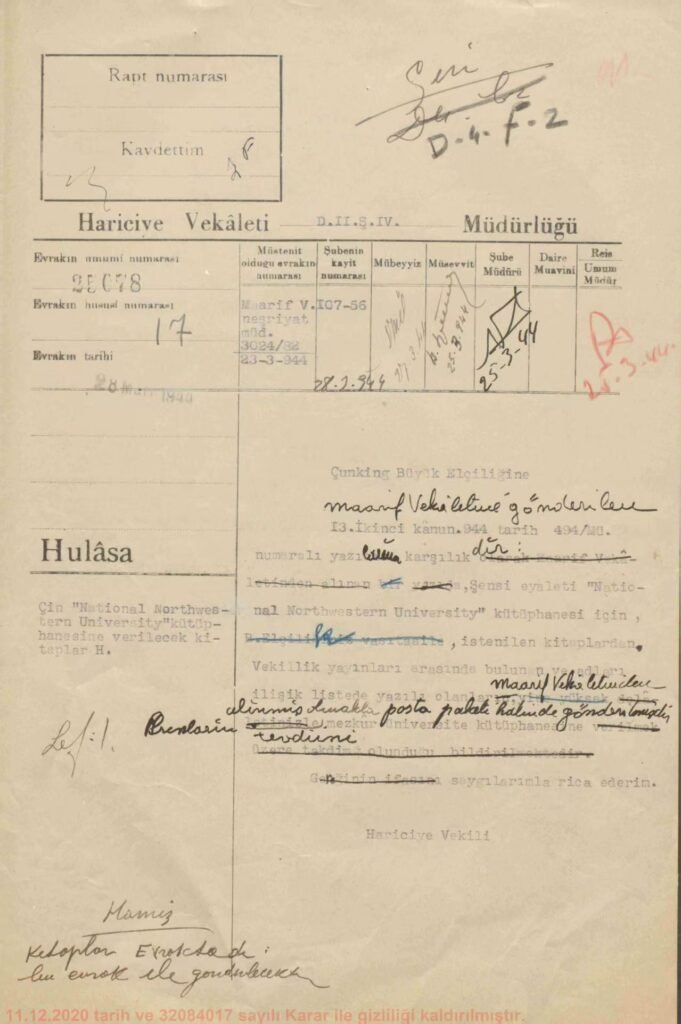 Rapt numarası
Kaydettim
Çin
D-4-F-2
Hariciye Vekâleti D.II.Ş.IV. Müdürlüğü
Evrakın umumi numarası
25078
Evrakın hususi numarası
17
Evrakın tarihi
28 Mart 1944
Müstenit olduğu evrakın numarası
Şubenin kayit numarası
Mübeyyiz
Müsevvit
Şube Müdürü
Daire Muavini
Reis Umum Müdür
Maarif V.
neşriyat
müd.
3024/82
23-3-944
I07-56
25-3-944
25-3-44
25-3-44
Hulâsa
Çin "National Northwes-
tern University"kütüp-
hanesine verilecek ki-
taplar H.
Çunking Büyük Elçiliğine
maarif Vekâletine gönderilen
I3.İkinci kânun.944 tarih 494/MU.
numaralı yazı karşılık dir:
olarak Maarif Vekâ-
letinden alınan bir yazıda,Şensi eyaleti "Natio-
nal Northwestern University" kütüphanesi için ,
B.Elçilik vasıtasile , istenilen kitaplardan,
Vekillik yayınları arasında bulunan ve adları
ilişik listede yazılı olanlar maarif Vekâletinden
alınmış olmakla posta paketi halinde gönderilmiştir
Bunların
mezkur üniversite kütüphanesine verilmek
tevdiini
üzere takdim olunduğu bildirilmektedir.
Gereğinin ifasını saygılarımla rica ederim.
Hariciye Vekili
Lef:1.
Hamiş
Kitaplar Evraktadır:
bu evrak ile gönderilecektir
11.12.2020 tarih ve 32084017 sayılı Karar ile gizliliği kaldırılmıştır.